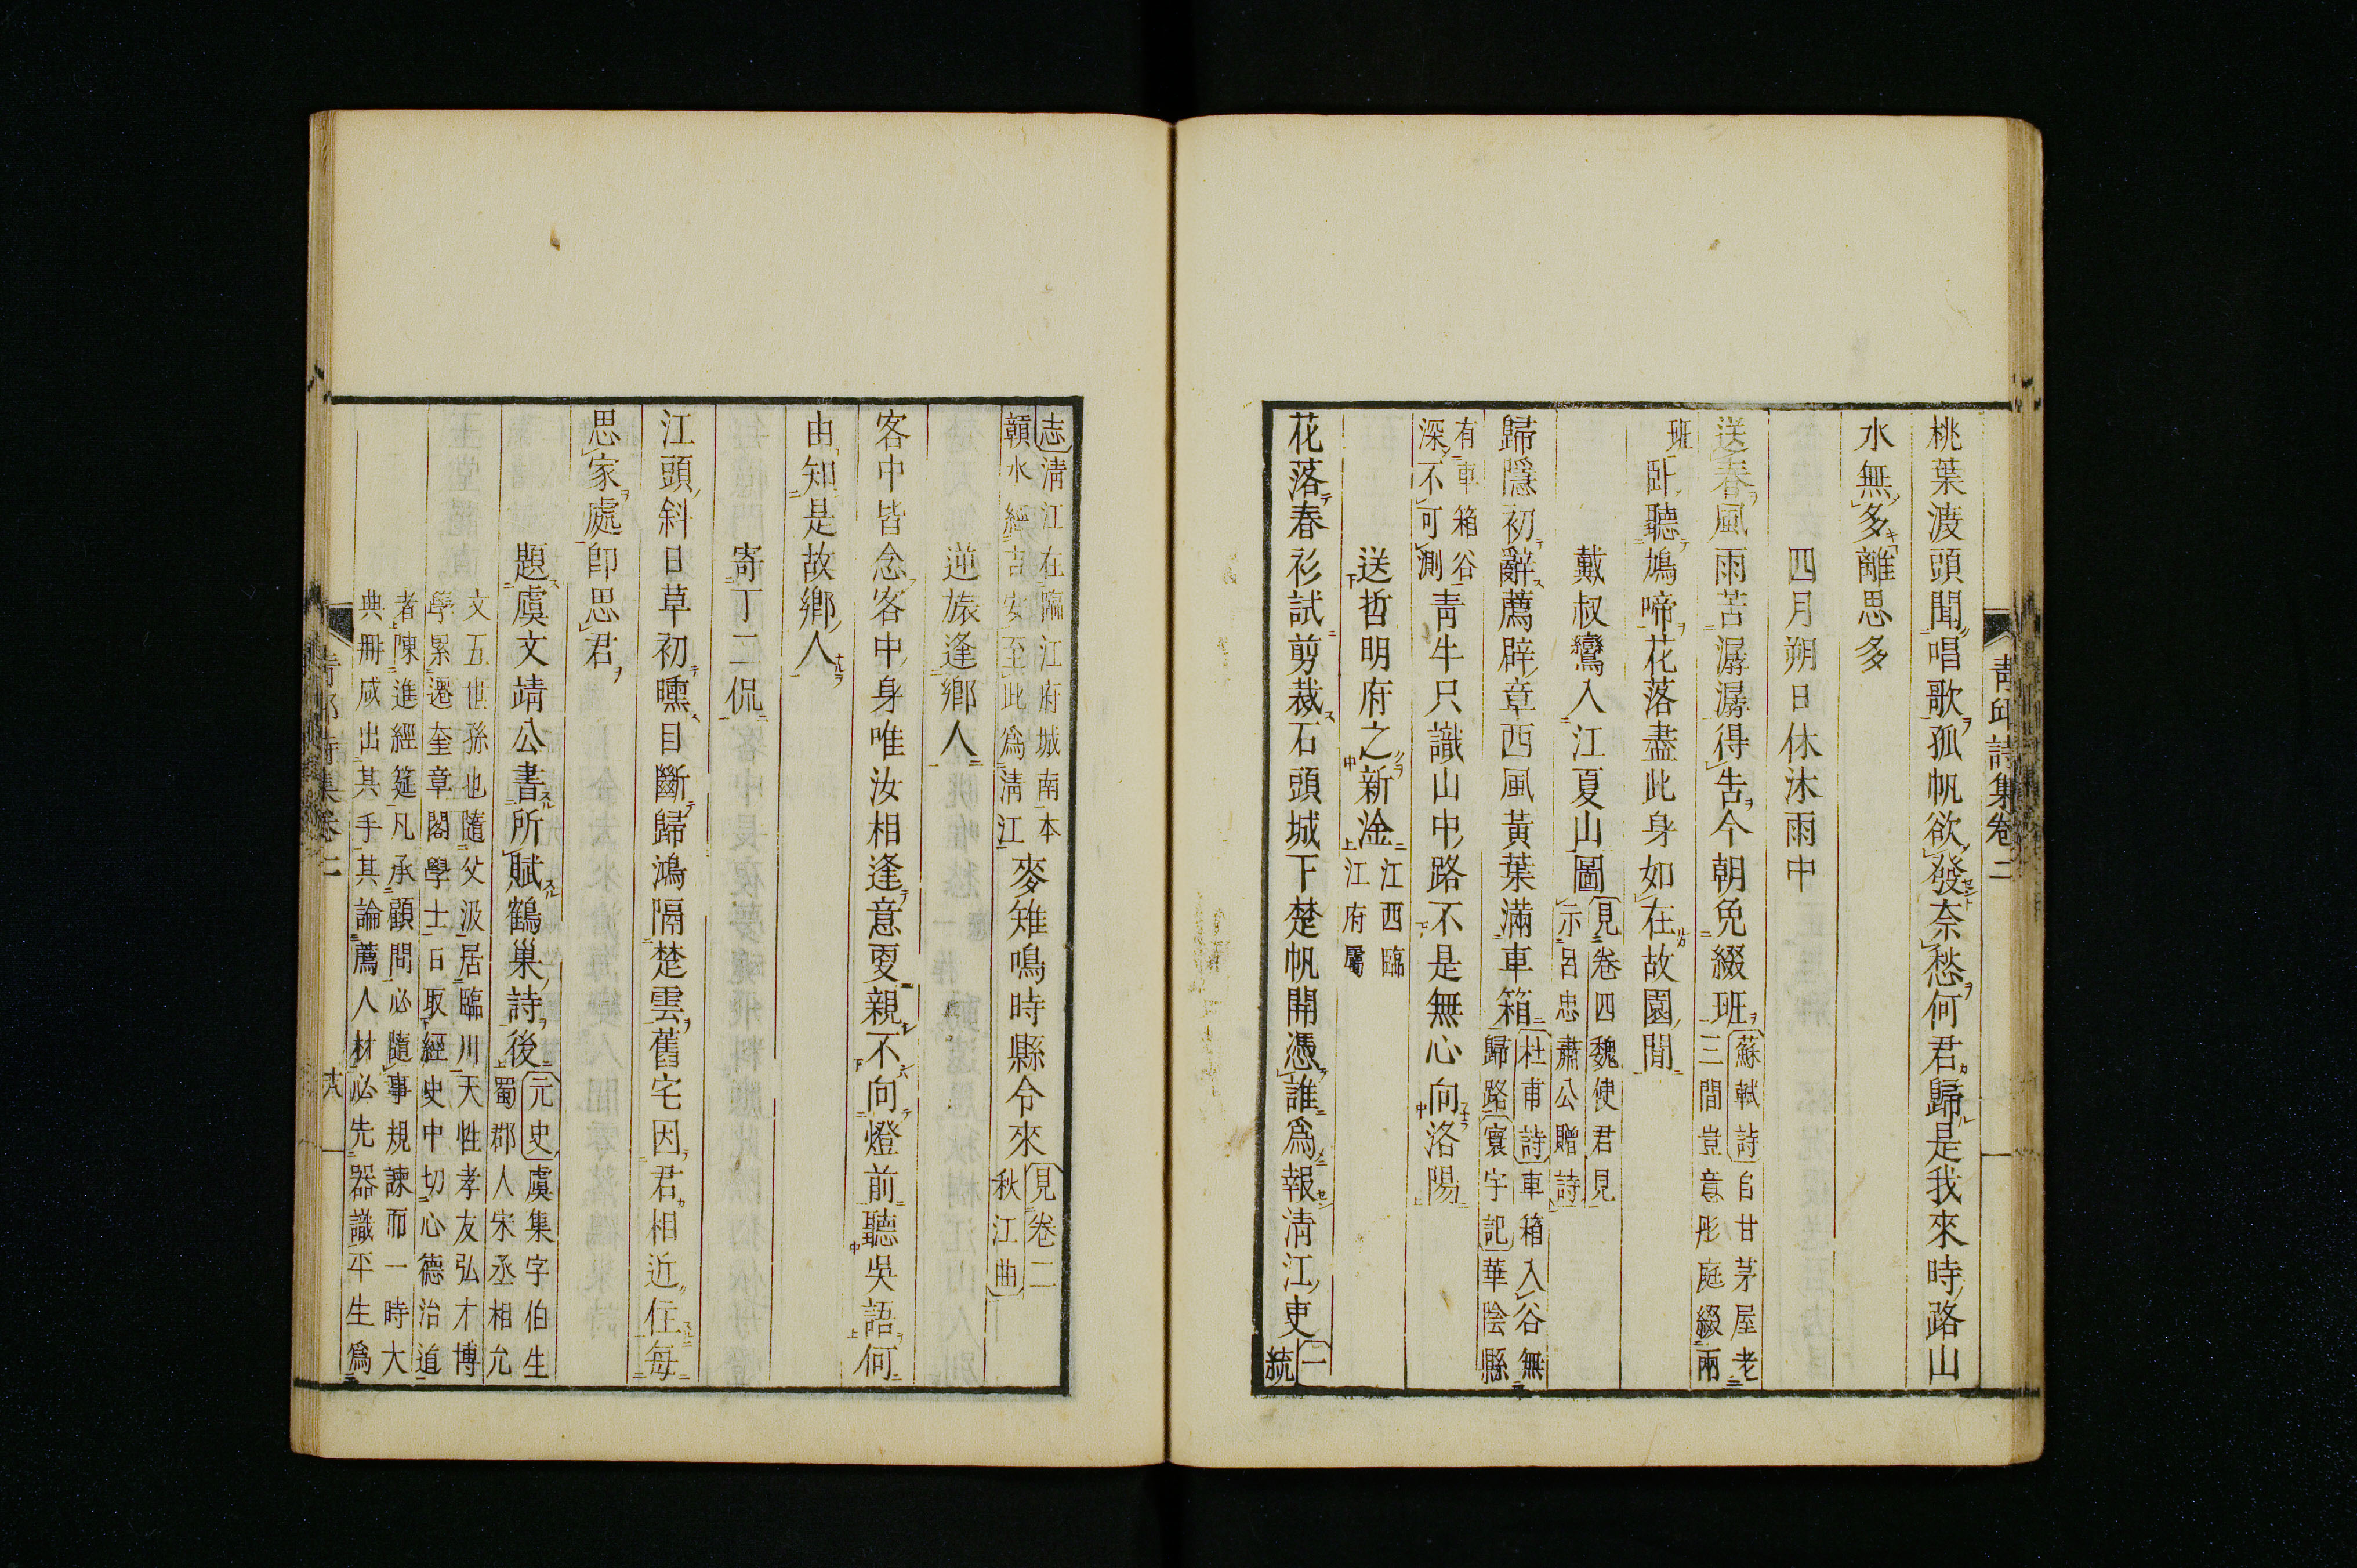 青邱詩集卷二
桃葉渡頭聞唱歌孤帆欲發奈愁何君歸是我來時路山
水無多離思多
四月朔日休沐雨中
送春風雨苦潺潺得告今朝免綴班蘇軾詩自甘茅屋老三間豈意彤庭綴兩
班臥聽鳩啼花落盡此身如在故園間
戴叔鸞入江夏山圖見卷四魏使君見示呂忠肅公贈詩
歸隱初辭薦辟章西風黃葉滿車箱杜甫詩車箱入谷無歸路寰宇記華陰縣
有車箱谷深不可測青牛只識山中路不是無心向洛陽
送哲明府之新淦江西臨江府屬
花落春衫試剪裁石頭城下楚帆開憑誰爲報清江吏一統
志清江在臨江府城南本贑水經吉安至此爲清江麥雉鳴時縣令來見卷二秋江曲
逆旅逢鄉人
客中皆念客中身唯汝相逢意更親不向燈前聽吳語何
由知是故鄉人
寄丁二侃
江頭斜日草初曛目斷歸鴻隔楚雲舊宅因君相近住每
思家處卽思君
題虞文靖公書所賦鶴巢詩後元史虞集字伯生蜀郡人宋丞相允
文五世孫也隨父汲居臨川天性孝友弘才博學累遷奎章閣學士日取經史中切心德治道
者陳進經筵凡承顧問必隨事規諫而一時大典冊咸出其手其論薦人材必先器識平生爲
青邱詩集卷二
十八